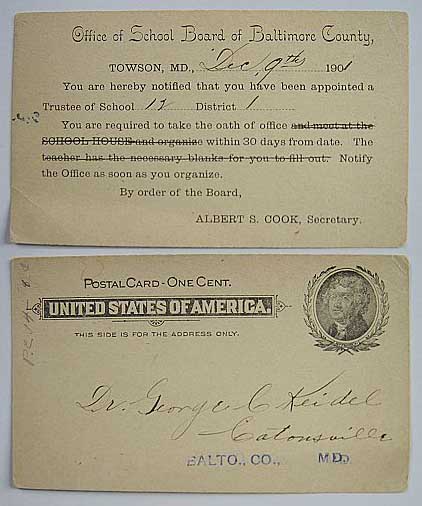 Office of School Board of Baltimore County,
TOWSON, MD., Dec. 9th 1901
You are hereby notified that you have been appointed a
Trustee of School 12 District 1
You are required to take the oath of office and meet at the
SCHOOL HOUSE and organize within 30 days from date. The
teacher has the necessary blanks for you to fill out. Notify
the Office as soon as you organize.
By order of the Board,
ALBERT S. COOK, Secretary.
POSTAL CARD - ONE CENT.
UNITED STATES OF AMERICA.
THIS SIDE IS FOR THE ADDRESS ONLY.
Dr. George C Keidel
Catonsville
BALTO., CO., MD.